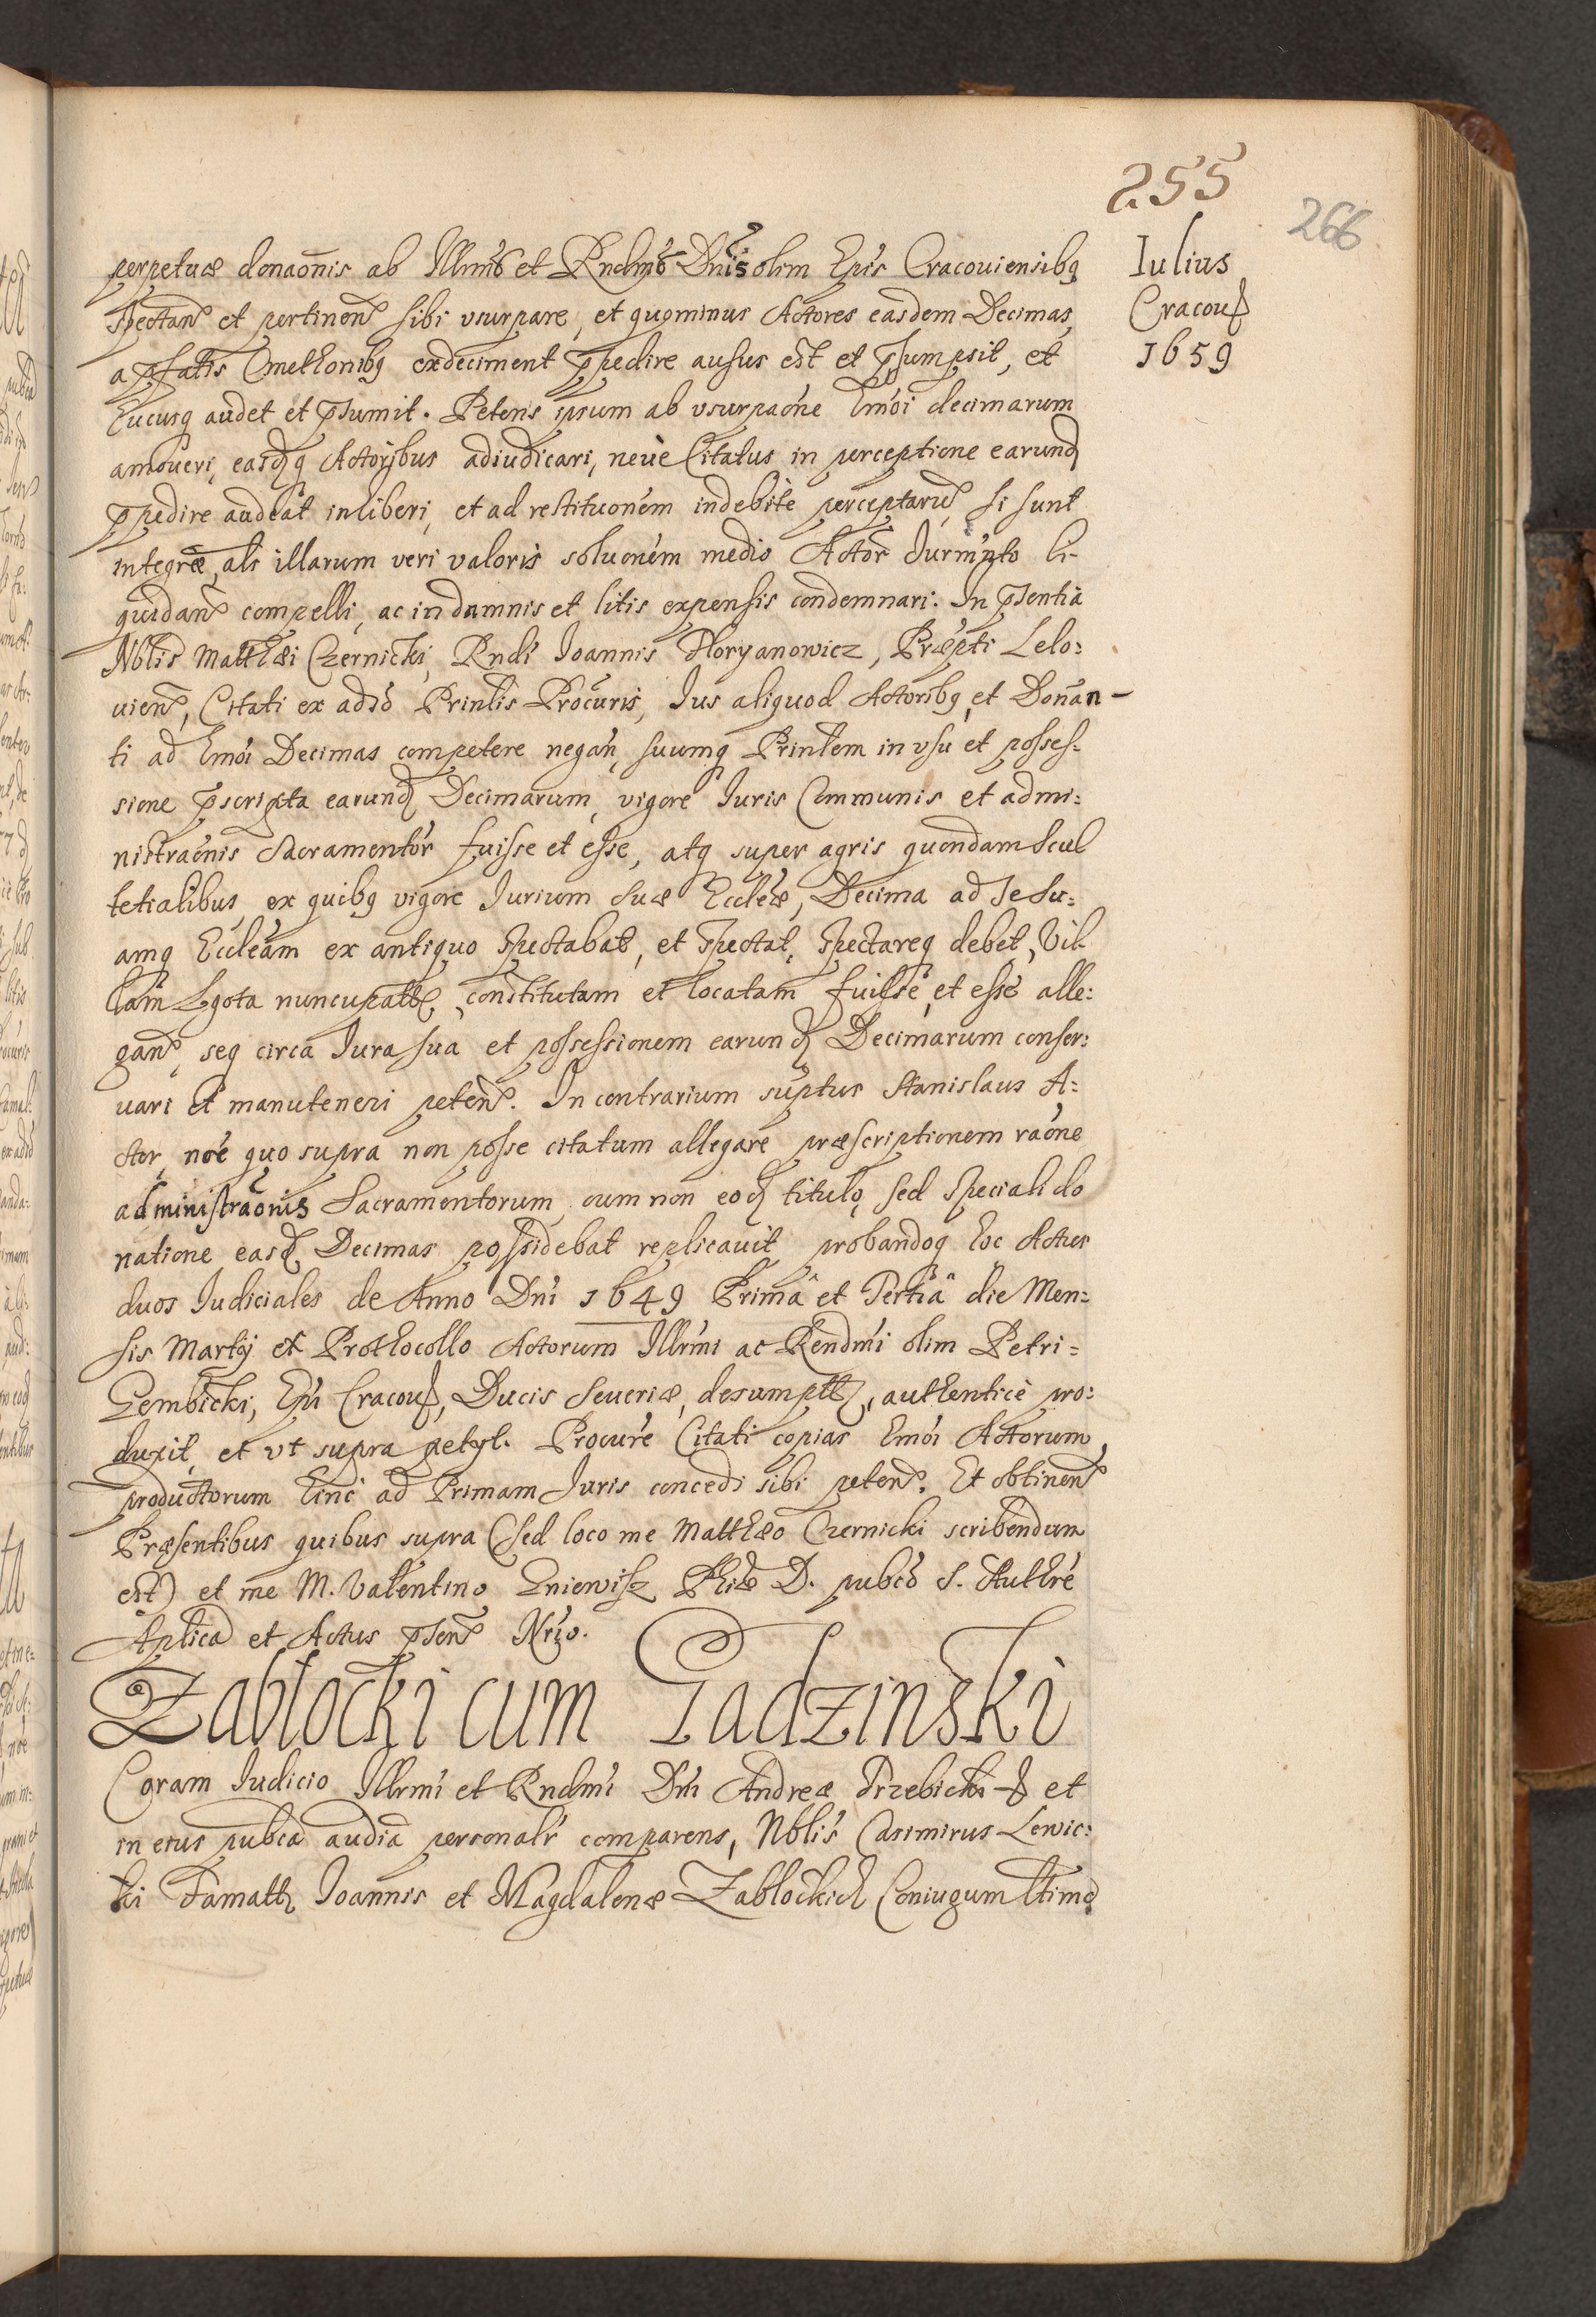 255
266
Iulius
Cracou
1659
perpetuæ donaōnis ab Illmīs et Rndmīs Dnīs olim Epīs Cracouiensibq
spectan et pertinen sibi vsurpare, et quominus Actores easdem Decimas,
a pfatis Cmethonibq exdeciment ppedire ausus est et psumpsit, et
hucusq audet et psumit. Petens ipsum ab vsurpaōne hmōi decimarum
amoueri, easdq Actoribus adiudicari, neue Citatus in perceptione earund
ppedire audeat inhiberi, et ad restituōnem indebite perceptaru si sunt
integræ, als illarum veri valoris soluōnem medio Actor Iurmnto li-
quidan compelli, ac in damnis et litis expensis condemnari. In psentia
Nblis Matthæi Czernicki, Rndi Ioannis Floryanowicz, Præpti Lelo:
uien, Citati ex adso Prinlis Procuris, Ius aliquod Actoribq et Donan-
ti ad hmōi Decimas competere negan, suumq Prinlem in vsu et posses-
sione pscripta earund Decimarum, vigore Iuris Communis et admi:
nistraōnis Sacramentor fuisse et esse, atq super agris quondam Scul
tetialibus, ex quibq vigore Iurium suæ Eccleæ, Decima ad se su:
amq Eccleam ex antiquo spectabat, et spectat, spectareq debet, Vil-
lam Lgota nuncupatt, constitutam et locatam fuisse, et esse alle:
gan, seq circa Iura sua et possessionem earund Decimarum conser:
uari et manuteneri peten. In contrarium suptus Stanislaus A:
ctor, nōe quo supra non posse citatum allegare præscriptionem raōne
administraōnis Sacramentorum cum non eod titulo, sed speciali do
natione easd Decimas possidebat replicauit, probandoq hoc Actus
duos Iudiciales de Anno Dni 1649 Primâ et Tertiâ die Men:
sis Martij ex Prothocollo Actorum Illrmi ac Rendmi olim Petri =
Gembicki, Epi Cracou, Ducis Seueriæ, desumptt, authentice pro:
duxit, et vt supra petyt. Procure Citati copias hmōi Actorum,
productorum hinc ad Primam Iuris concedi sibi peten. Et obtinen
Præsentibus quibus supra (sed loco me Matthæo Czernicki scribendum
est) et me M. Valentino Gniewisz Phiæ D. pubco S. Authre
Aplica et Actus psen Nrio.
Zabłocki cum Gadzinski
Coram Iudicio Illrmi et Rndmi Dni Andreæ Trzebicki et
in eius pubca audia personalr comparens, Nblis Casimirus Lewic:
ki Famatt Ioannis et Magdalenæ Zabłockich Coniugum ltimq